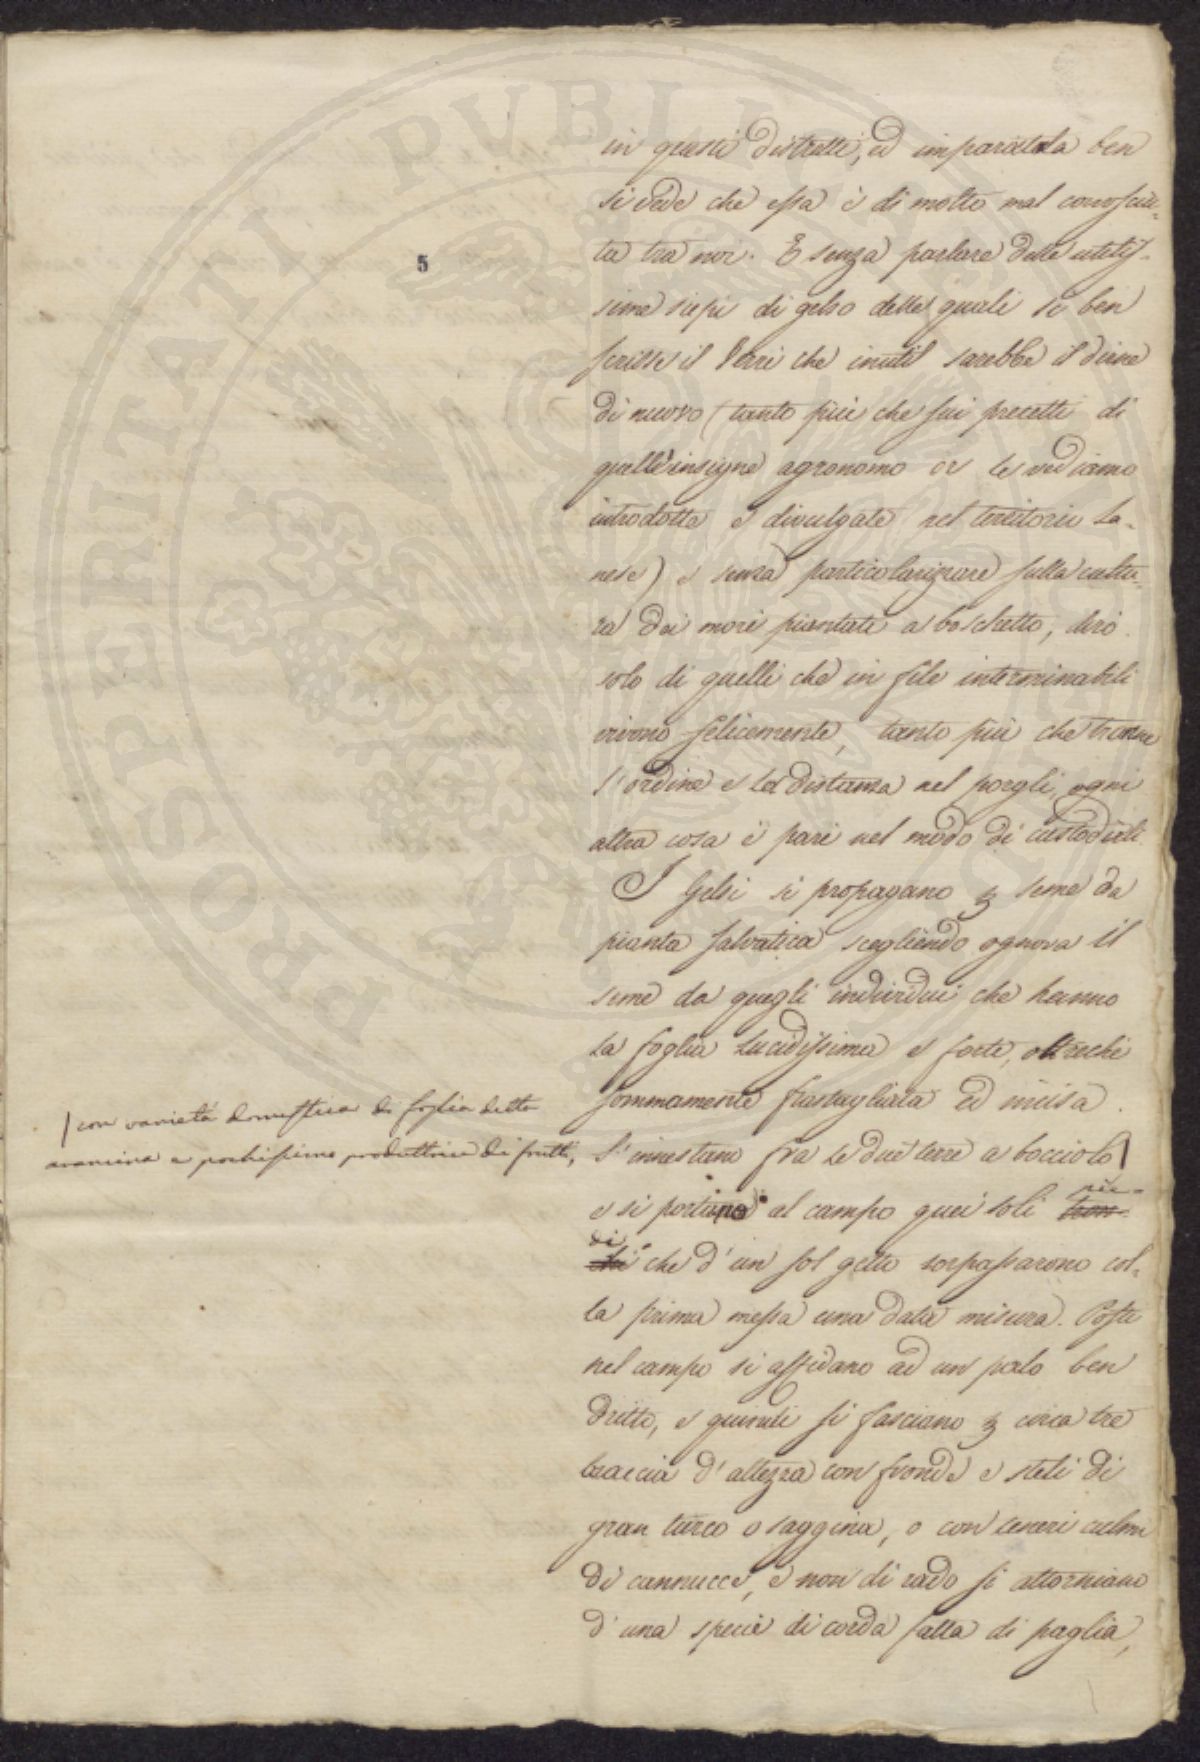 PROSPERITATI PVBLICAE
5
in questi distretti, ed imparatala ben
si vede che essa è di molto mal conosciu-
ta tra noi. E senza parlare delle utilis-
sime siepi di gelso delle quali sì ben
scrisse il Verri che inutil sarebbe il dirne
di nuovo (tanto più che sui precetti di
quell'insigne agronomo or le vediamo
introdotte e divulgate nel territorio La-
nese) e senza particolarizzare sulla cultu-
ra dei mori piantati a boschetto, dirò
solo di quelli che in file interminabili
vivono felicemente, tanto più che tranne
l'ordine e la distanza nel porgli, ogni
altra cosa è pari nel modo di custodirli.
I Gelsi si propagano p seme da
pianta salvatica scegliendo ognora il
seme da quegli individui che hanno
la foglia lucidissima e forte, oltrechè
sommamente frastagliata ed incisa.
S'innestano fra le due terre a bocciolo/
/con varietà domestica di foglia detta
arancina e pochissimo produttrice di frutti,
e si portano al campo quei soli
che d'un sol getto sorpassarono col-
la prima messa una data misura. Posti
nel campo si affidano ad un palo ben
dritto, e quindi si fasciano p circa tre
braccia d'altezza con fronde e steli di
gran turco o saggina, o con teneri culmi
di cannucce, e non di rado si attorniano
d'una specie di corda fatta di paglia,